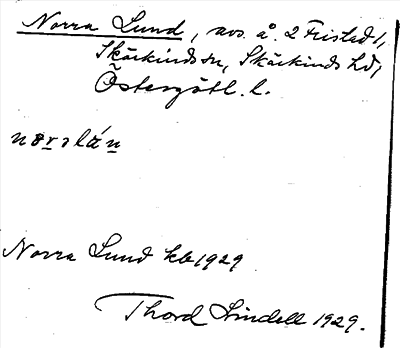 Norra Lund, avs. å. 2 Fristad 1,
Skärkinds sn, Skärkinds hd,
Östergötl. l.
Norra Lund kb 1929
Thord Lindell 1929.